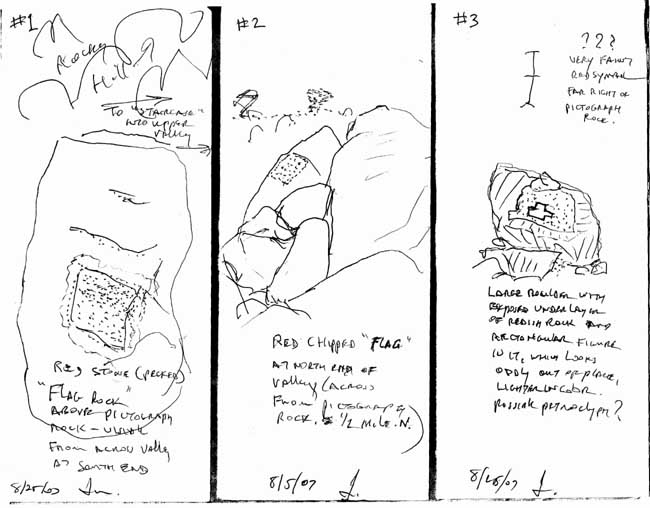 #1
Rocky
Hills
To "STAIRCASE"
INTO UPPER
VALLEY
RED STONE (PECKED)
"FLAG ROCK"
ABOVE PICTOGRAPH
ROCK -
FROM ACROSS VALLEY
AT SOUTH END
8/25/07
#2
RED CHIPPED "FLAG"
AT NORTH END OF
VALLEY (ACROSS
FROM PICTOGRAPH
ROCK. 1/2 MILE. N.)
8/5/07
#3
???
VERY FAINT
RED SYMBOL
FAR RIGHT OF
PICTOGRAPH
ROCK.
LARGE BOULDER WITH
EXPOSED UNDERLAYER
OF REDISH ROCK AND
RECTANGULAR FIGURE
IN IT, WHICH LOOKS
ODDLY OUT OF PLACE,
LIGHTER IN COLOR.
POSSIBLE PETROGLYPH?